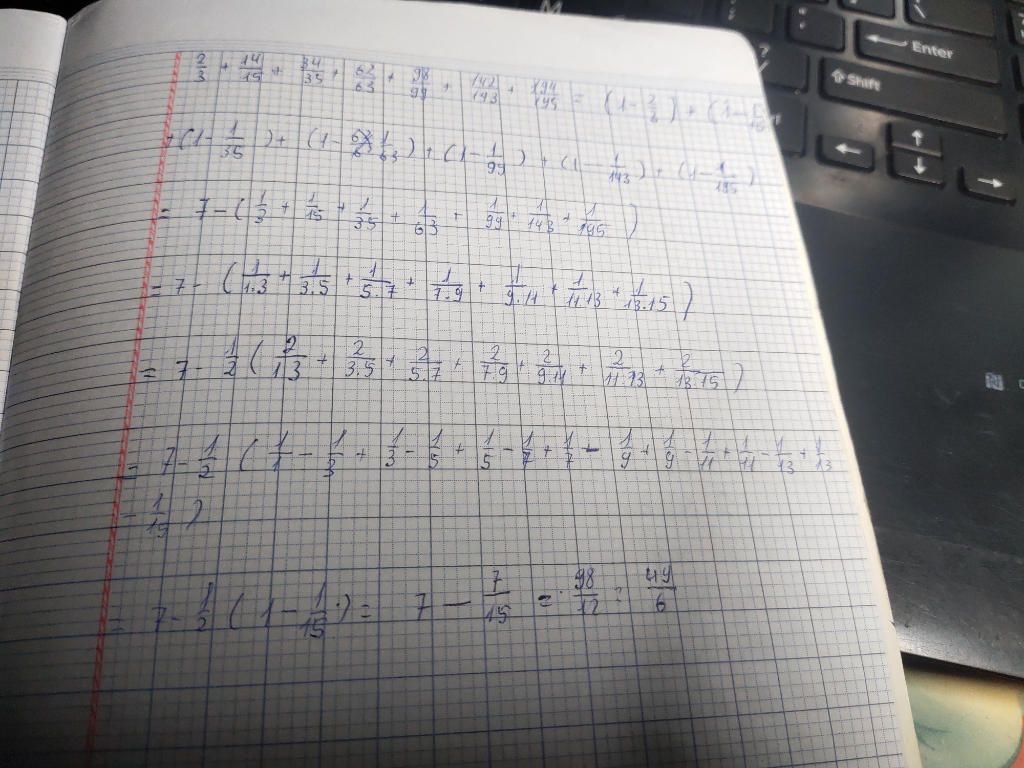 2/3 + 14/15 + 34/35 + 62/63 + 98/99 + 142/143 + 194/195 = (1 - 2/3) + (1 - 1/15)
+ (1 - 1/35) + (1 - 1/63) + (1 - 1/99) + (1 - 1/143) + (1 - 1/195)
= 7 - (1/3 + 1/15 + 1/35 + 1/63 + 1/99 + 1/143 + 1/195)
= 7 - (1/1.3 + 1/3.5 + 1/5.7 + 1/7.9 + 1/9.11 + 1/11.13 + 1/13.15)
= 7 - 1/2 (2/1.3 + 2/3.5 + 2/5.7 + 2/7.9 + 2/9.11 + 2/11.13 + 2/13.15)
= 7 - 1/2 (1/1 - 1/3 + 1/3 - 1/5 + 1/5 - 1/7 + 1/7 - 1/9 + 1/9 - 1/11 + 1/11 - 1/13 + 1/13
- 1/15)
= 7 - 1/2 (1 - 1/15) = 7 - 7/15 = 98/12 = 49/6
Enter
Shift
M